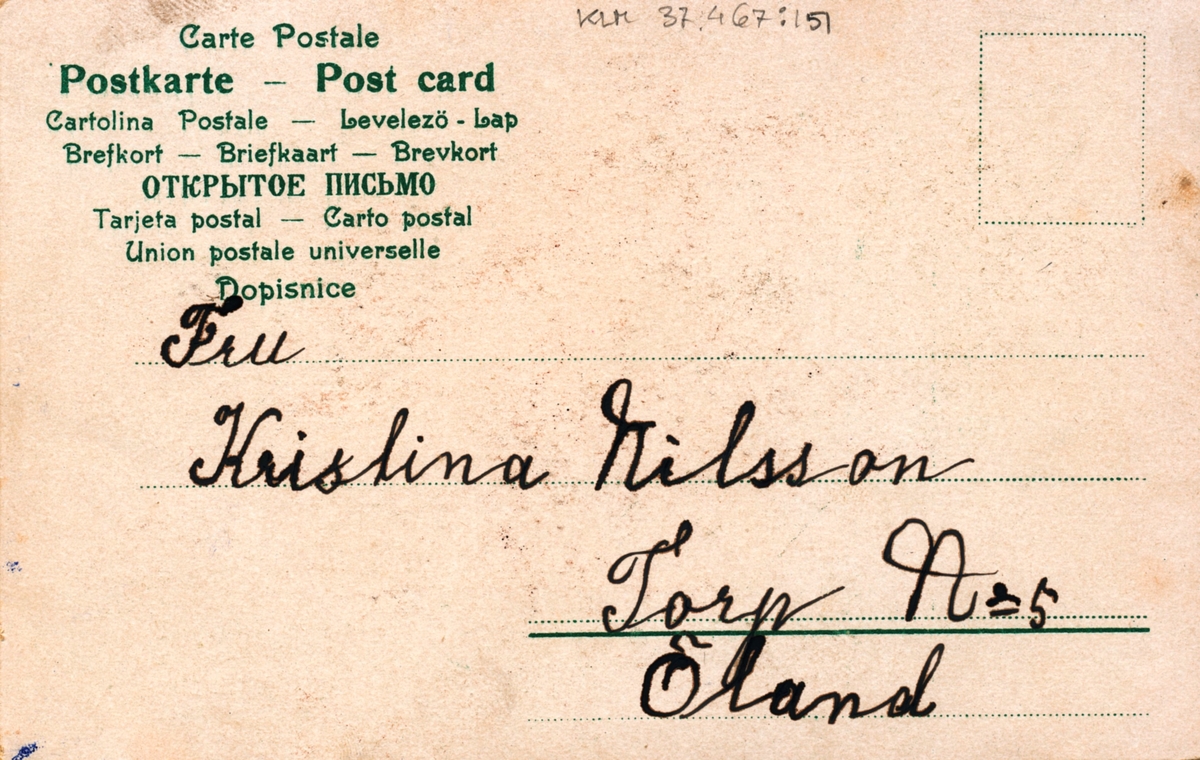 KLM 37.467:151
Carte Postale
Postkarte — Post card
Cartolina Postale — Levelezö - Lap
Brefkort — Briefkaart — Brevkort
ОТКРЫТОЕ ПИСЬМО
Tarjeta postal — Carto postal
Union postale universelle
Dopisnice
Fru
Kristina Nilsson
Torp N= 5
Öland